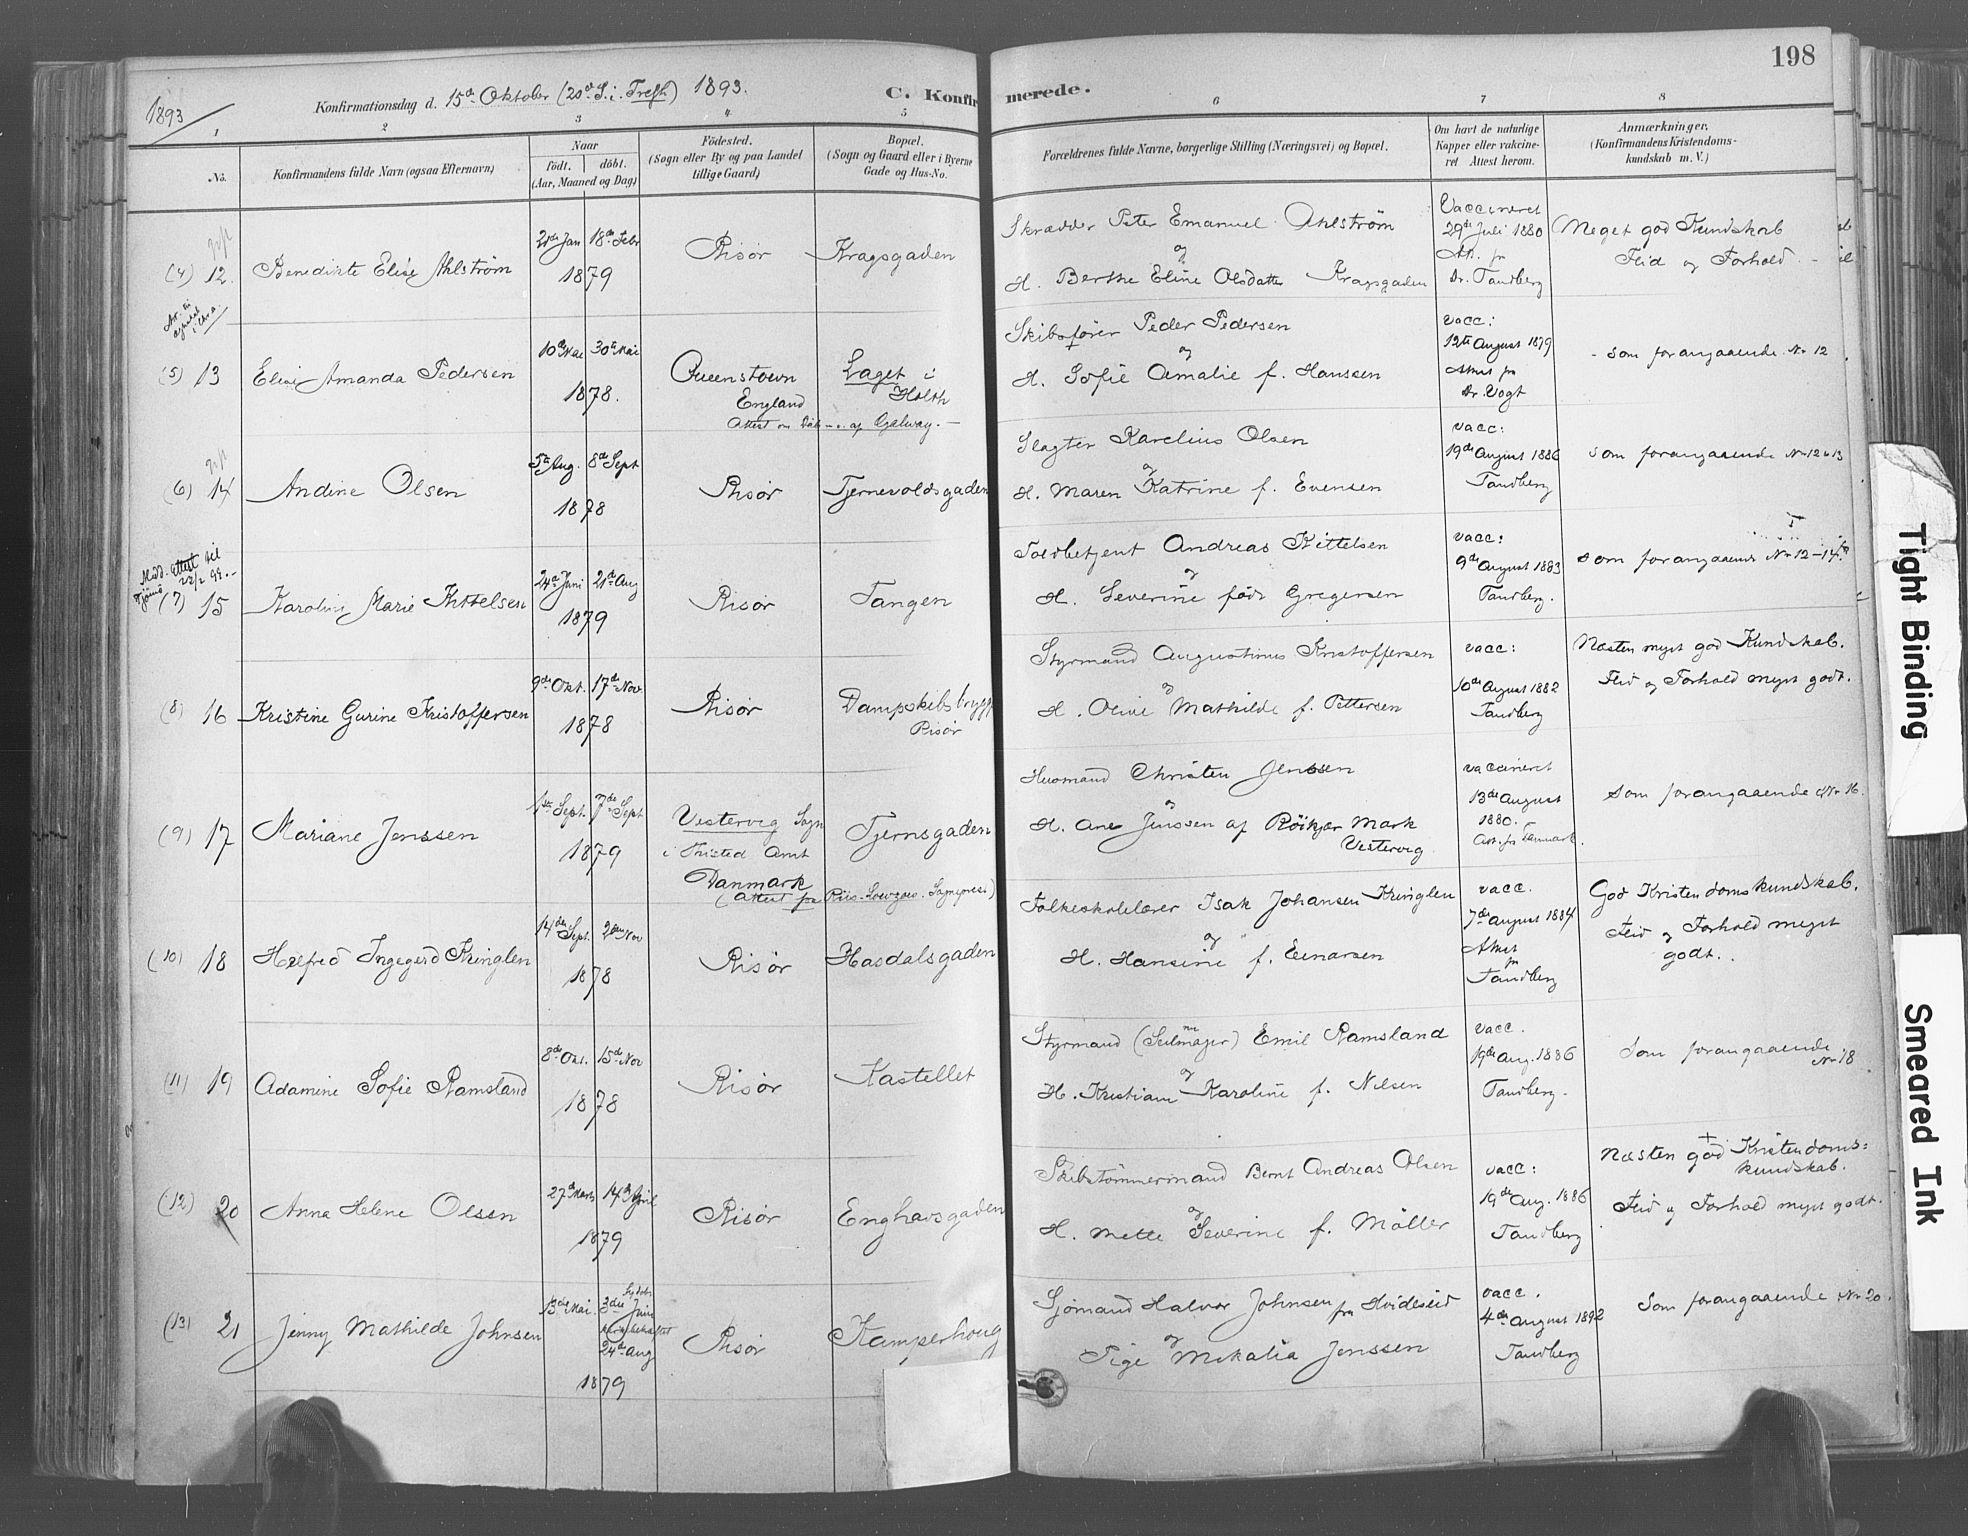 198
1893
Konfirmationsdag d. 15de Oktober (20de S. i. Trefh) 1893.
C. Konfirmerede.
1 2 3 4 5 6 7 8
No.
Konfirmandens fulde Navn (ogsaa Efternavn)
Naar
födt. döbt.
(Aar, Maaned og Dag)
Födested.
(Sogn eller By og paa Landet
tillige Gaard)
Bopæl.
(Sogn og Gaard eller i Byerne
Gade og Hus-No.
Forældrenes fulde Navne, borgerlige Stilling (Næringsvei) og Bopæl.
Om havt de naturlige
Kopper eller vakcine-
ret Attest herom.
Anmærkninger.
(Konfirmandens Kristendoms-
kundskab m. V.)
(4) 12. Benedikte Elise Ahlström
Jan 18de Febr
1879
Risör
Kragsgaden
Skrædder Peter Emanuel Ahlström
og
H. Berthe Eline Olsdatter Kragsgaden
Vaccineret
29de Juli 1880
Att. fr
Dr. Tandberg
Meget god Kundskab
Flid og Forhold.
(5) 13 Elise Amanda Pedersen
10de Mai 30te Mai
1878.
Queenstown
England
Attest om Daab af Galway.
Laget i
Holth
Skibsfører Peder Pedersen
og
H. Sofie Amalie f. Hanssen
vacc:
12te August 1879
Attest fra
Dr. Vogt
- som forangaaende No 12
(6) 14 Andine Olsen
5te Aug. 8de Sept
1878
Risör
Tjernevoldsgaden
Slagter Karelius Olsen
og
H. Maren Katrine f. Evensen
vacc:
19de August 1886
Tandberg
som forangaaende No 12 & 13
Medd. attest til
Tjømø 22/2 99.-
(7) 15 Karoline Marie Kittelsen
24de Juni 21de Aug
1879
Risör
Tangen
Toldbetjent Andreas Kittelsen
og
H. Severine född Gregersen
vacc:
9de August 1883
Tandberg.
som forangaaende No 12-14
(8) 16 Kristine Gurine Kristoffersen
9de Okt. 17de Nov.
1878
Risör
Dampskibsbrygg
Risör
Styrmand Augustinus Kristoffersen
og
H. Olive Mathilde f. Pettersen
vacc:
10de August 1882
Tandberg
Næsten meget god Kundskab.
Flid og Forhold meget godt.
(9) 17 Mariane Jenssen
1ste Sept. 7de Sept
1879
Vestervig Sogn
i Thisted Amt
Danmark
(Attest fra Riis. Sognepræst)
Tjernsgaden
Husmand Christen Jenssen
og
H. Ane Jenssen af Röikjær Mark
Vestervig
vaccineret
13de August
1880.
Att. fra Danmark.
Som forangaaende No 16.
(10) 18 Helfred Ingegerd Kringlen
14de Sept. Nov
1878
Risör
Hasdalsgaden
Folkeskolelærer Isak Johansen Kringlen
og
H. Hansine f. Einarsen
vacc.
7de August 1884
Attest
fr
Tandberg
God Kristendomskundskab.
Flid og Forhold meget
godt.
(11) 19 Adamine Sofie Ramsland
8de Okt. 15de Nov
1878
Risör
Kastellet
Styrmand (Seilmager) Emil Ramsland
og
H. Kristiane Karoline f. Nilsen
vacc.
19de Aug. 1886
Tandberg.
Som forangaaende
No 18
(12) 20 Anna Helene Olsen
27de Marts 14de April
1879
Risör
Enghavsgaden
Skibstömmermand Bernt Andreas Olsen
og
H. Mette Severine f. Möller
vacc:
19de Aug. 1886
Tandberg
Næsten god Kristendoms=
kundskab.
Flid og Forhold meget godt.
(13) 21 Jenny Mathilde Johnsen
13de Mai. 3die Juni
24de Aug
1879
Risör
Kamperhoug
Sjömand Halvor Johnsen fra Hvideseid
og
Pige Mikalia Jenssen
vacc.
4de August 1892
Tandberg
Som forangaaende No 20.
Tight Binding
Smeared Ink